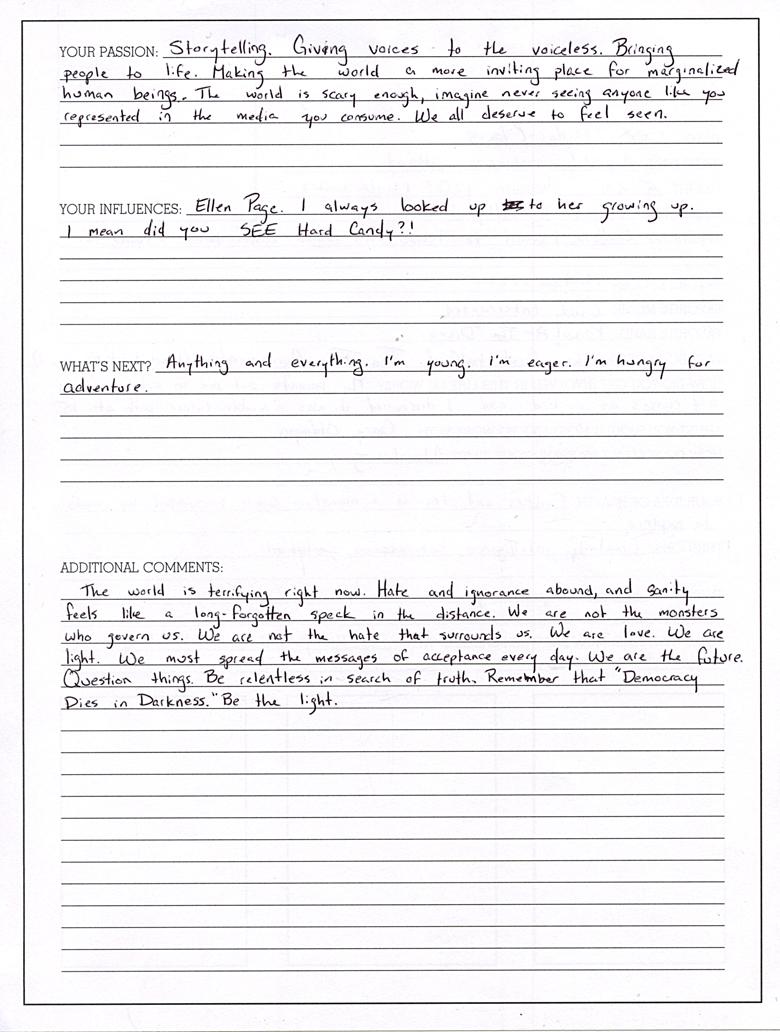 YOUR PASSION: Storytelling. Giving voices to the voiceless. Bringing
people to life. Making the world a more inviting place for marginalized
human beings. The world is scary enough, imagine never seeing anyone like you
represented in the media you consume. We all deserve to feel seen.
YOUR INFLUENCES: Ellen Page. I always looked up to her growing up.
I mean did you SEE Hard Candy?!
WHAT'S NEXT? Anything and everything. I'm young. I'm eager. I'm hungry for
adventure.
ADDITIONAL COMMENTS:
The world is terrifying right now. Hate and ignorance abound, and sanity
feels like a long-forgotten speck in the distance. We are not the monsters
who govern us. We are not the hate that surrounds us. We are love. We are
light. We must spread the messages of acceptance every day. We are the future.
Question things. Be relentless in search of truth. Remember that "Democracy
Dies in Darkness." Be the light.